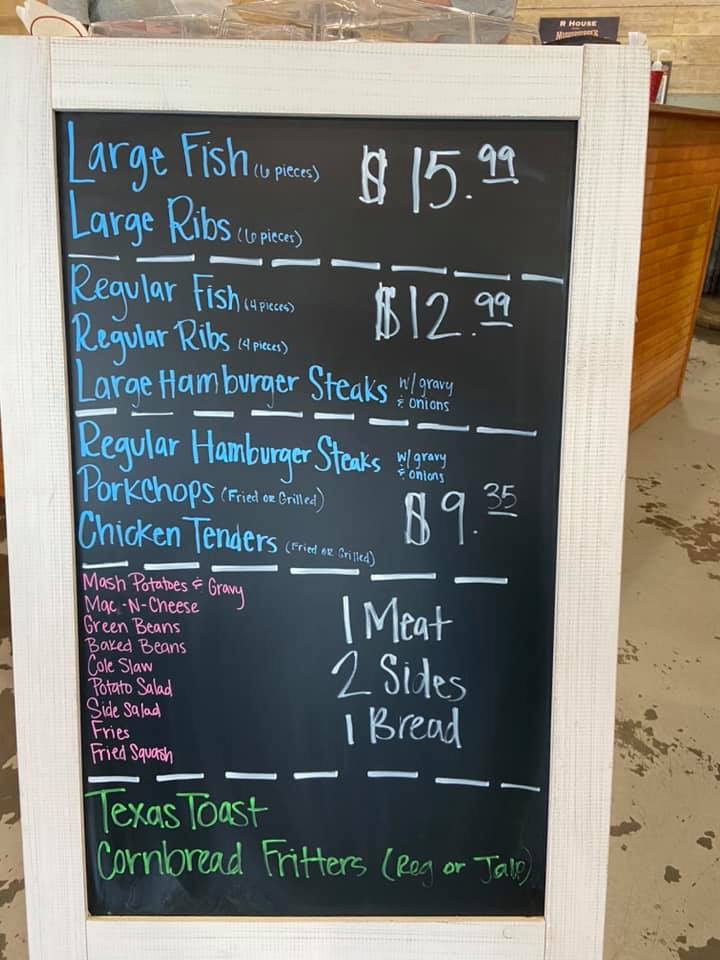 R House
Large Fish (6 pieces) $15.99
Large Ribs (6 pieces)
Regular Fish (4 pieces) $12.99
Regular Ribs (4 pieces)
Large Hamburger Steaks w/ gravy & onions
Regular Hamburger Steaks w/ gravy & onions
Porkchops (Fried or Grilled) $9.35
Chicken Tenders (Fried or Grilled)
Mash Potatoes & Gravy
Mac-N-Cheese
Green Beans
Baked Beans
Cole Slaw
Potato Salad
Side Salad
Fries
Fried Squash
1 Meat
2 Sides
1 Bread
Texas Toast
Cornbread Fritters (Reg or Jalp)